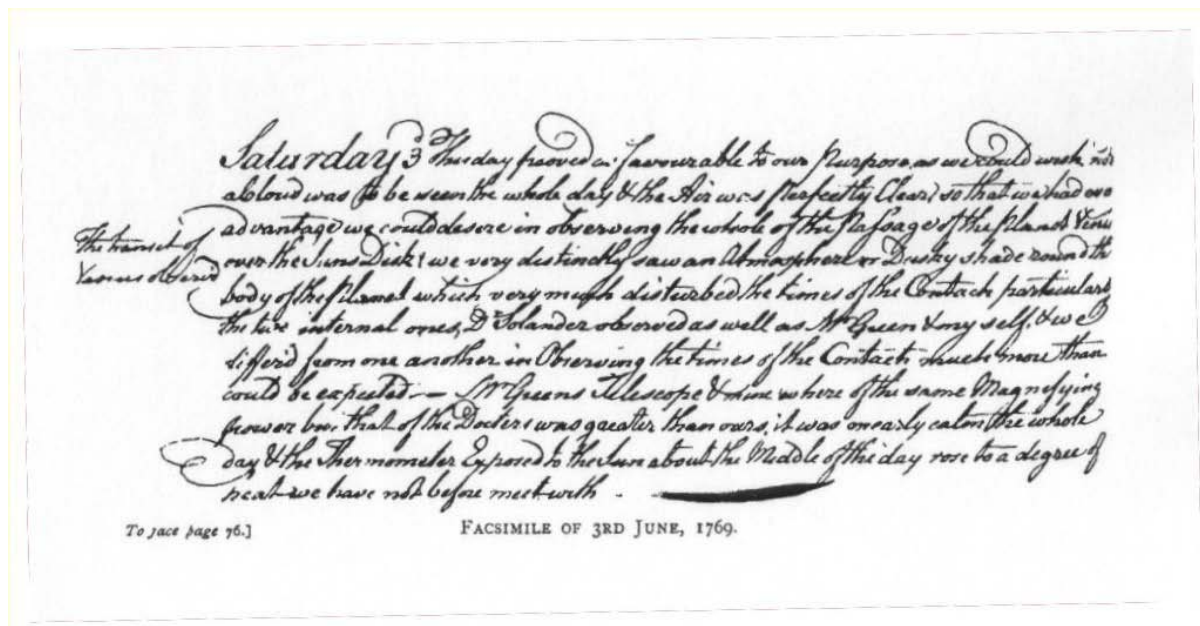 Saturday 3 This day proved as favourable to our Purpose as we could wish, not
a Cloud was to be seen the whole day & the Air was Perfectly Clear, so that we had eve
advantage we could desire in observing the whole of the Passage of the Planet Venu
The transit of
Venus observed
over the Suns Disk: we very distinctly saw an Atmosphere or Dusky shade round th
body of the Planet which very much disturbed the times of the Contact particularly
the two internal ones, Dr Solander observed as well as Mr Green & my self, & we
differ'd from one another in Observing the times of the Contacts much more than
could be expected — Mr Greens Telescope & mine where of the same Magnifying
power but that of the Docters was greater than ours, it was nearly calm the whole
day & the Thermometer Exposed to the Sun about the Middle of the day rose to a degree of
heat we have not before meet with.
To face page 76.]
FACSIMILE OF 3RD JUNE, 1769.